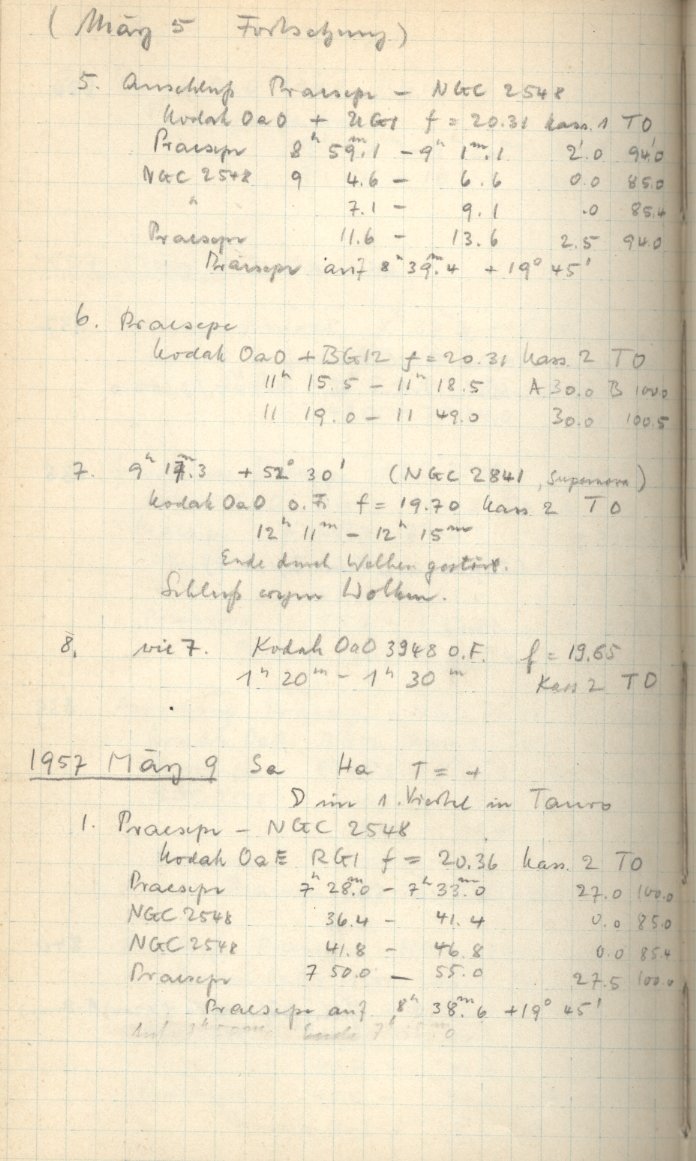 (März 5 Fortsetzung)
5. Anschluß Praesepe – NGC 2548
Kodak OaO + UG1 f = 20.31 Kass. 1 TO
Praesepe 8ʰ 59ᵐ.1 – 9ʰ 1ᵐ.1 2.0 94.0
NGC 2548 9 4.6 – 6.6 0.0 85.0
" 7.1 – 9.1 .0 85.4
Praesepe 11.6 – 13.6 2.5 94.0
Praesepe auf 8ʰ 39ᵐ.4 + 19° 45'
6. Praesepe
Kodak OaO + BG12 f = 20.31 Kass. 2 TO
11ʰ 15.5 – 11ʰ 18.5 A 30.0 B 100.0
11 19.0 – 11 49.0 30.0 100.5
7. 9ʰ 17ᵐ.3 + 52° 30' (NGC 2841, Supernova)
Kodak OaO o.F. f = 19.70 Kass 2 TO
12ʰ 11ᵐ – 12ʰ 15ᵐ
Ende durch Wolken gestört.
Schluß wegen Wolken.
8. wie 7. Kodak OaO 3948 o.F. f = 19.65
1ʰ 20ᵐ – 1ʰ 30ᵐ Kass 2 TO
1957 März 9 Sa Ha T = +
im 1. Viertel in Tauro
1. Praesepe – NGC 2548
Kodak OaE RG1 f = 20.36 Kass. 2 TO
Praesepe 7ʰ 28ᵐ.0 – 7ʰ 33ᵐ.0 27.0 100.0
NGC 2548 36.4 – 41.4 0.0 85.0
NGC 2548 41.8 – 46.8 0.0 85.4
Praesepe 7 50.0 – 55.0 27.5 100.0
Praesepe auf 8ʰ 38ᵐ.6 + 19° 45'